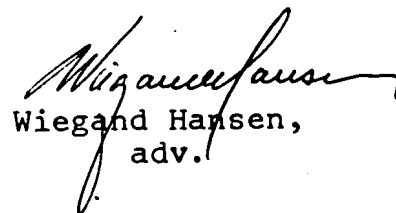 Wiegand Hansen
Wiegand Hansen,
adv.